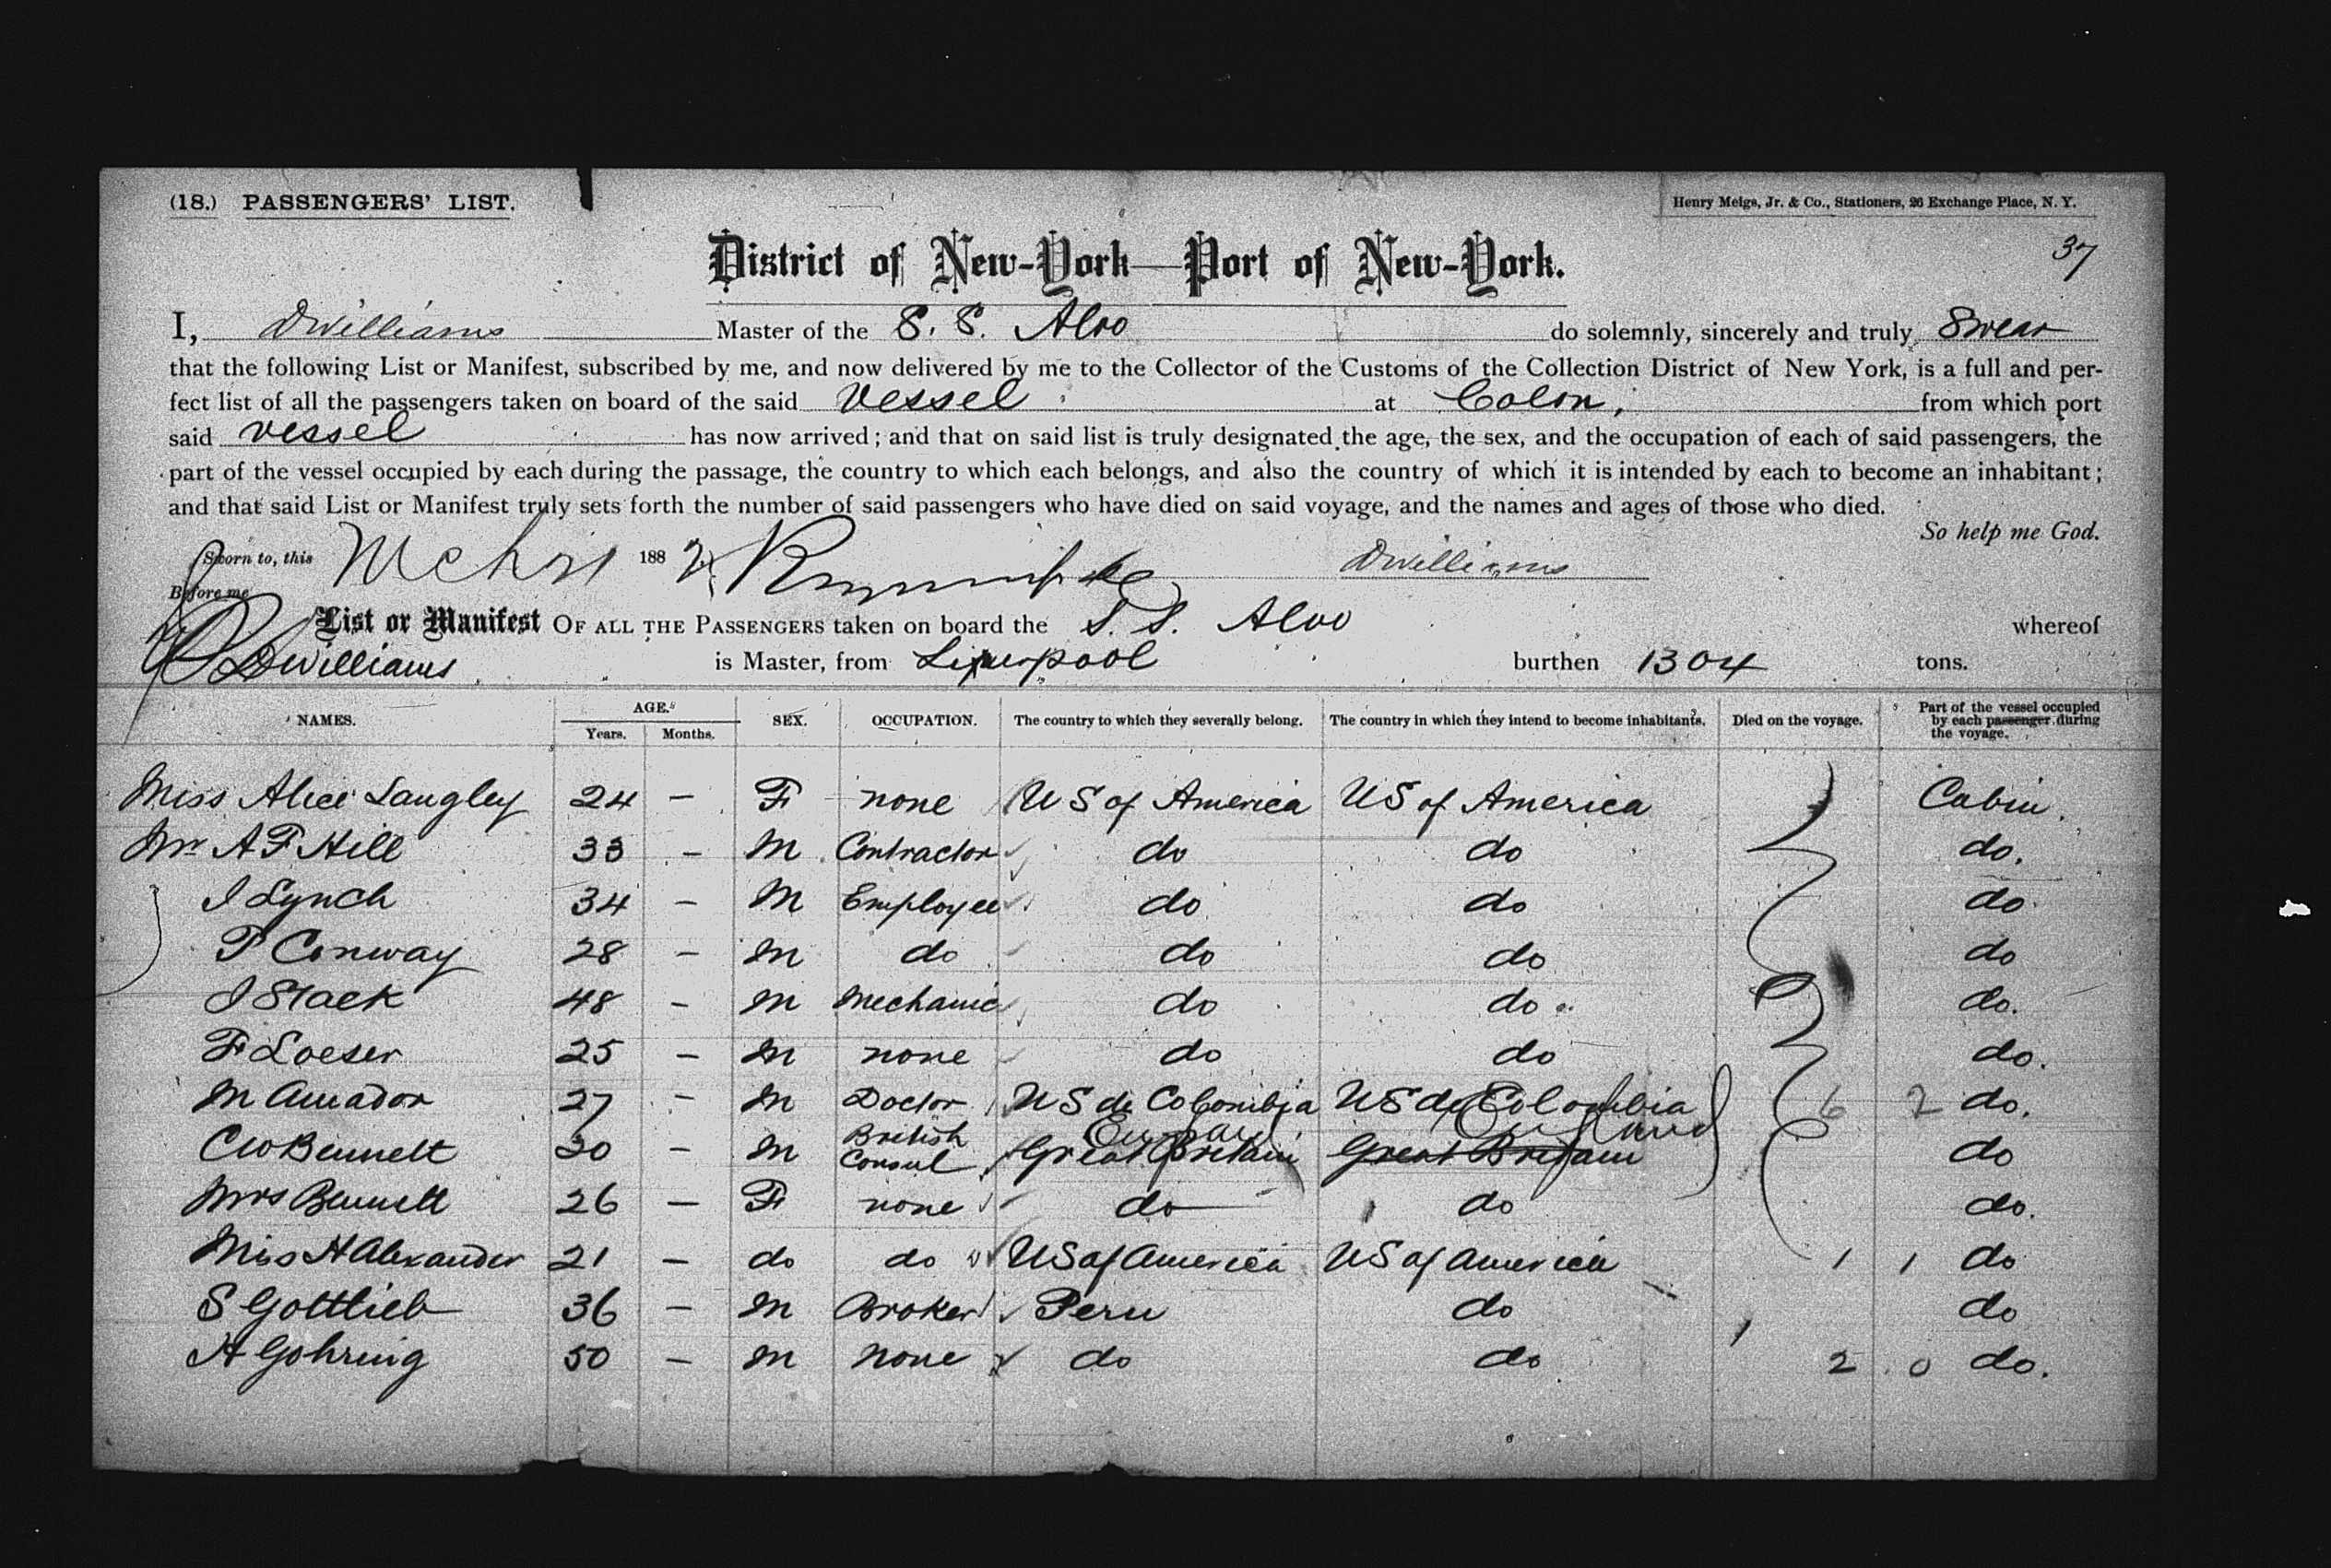 (18.) PASSENGERS' LIST.
Henry Meigs, Jr. & Co., Stationers, 26 Exchange Place, N. Y.
37
District of New-York—Port of New-York.
I, D Williams Master of the S. S. Alvo do solemnly, sincerely and truly Swear
that the following List or Manifest, subscribed by me, and now delivered by me to the Collector of the Customs of the Collection District of New York, is a full and per-
fect list of all the passengers taken on board of the said Vessel at Colon, from which port
said vessel has now arrived; and that on said list is truly designated the age, the sex, and the occupation of each of said passengers, the
part of the vessel occupied by each during the passage, the country to which each belongs, and also the country of which it is intended by each to become an inhabitant;
and that said List or Manifest truly sets forth the number of said passengers who have died on said voyage, and the names and ages of those who died.
So help me God.
Sworn to, this 1882 D Williams
Before me
List or Manifest OF ALL THE PASSENGERS taken on board the S. S. Alvo whereof
D Williams is Master, from Liverpool burthen 1304 tons.
NAMES. AGE. Years. Months. SEX. OCCUPATION. The country to which they severally belong. The country in which they intend to become inhabitants. Died on the voyage. Part of the vessel occupied by each passenger during the voyage.
Miss Alice Langley 24 — F none U S of America U S of America Cabin
Mr A F Hill 33 — M Contractor do do do.
J Lynch 34 — M Employee do do do
P Conway 28 — M do do do do
J Stack 48 — M Mechanic do do do.
F Loeser 25 — M none do do do.
M Amador 27 — M Doctor U S de Colombia U S de Colombia 6 2 do.
C W Bennett 30 — M British Consul Great Britain England Great Britain do
Mrs Bennett 26 — F none do do do.
Miss H Alexander 21 — do do U S of America U S of America 1 1 do
S Gottlieb 36 — M Broker Peru do do
H Gohring 50 — M none do do 2 0 do.